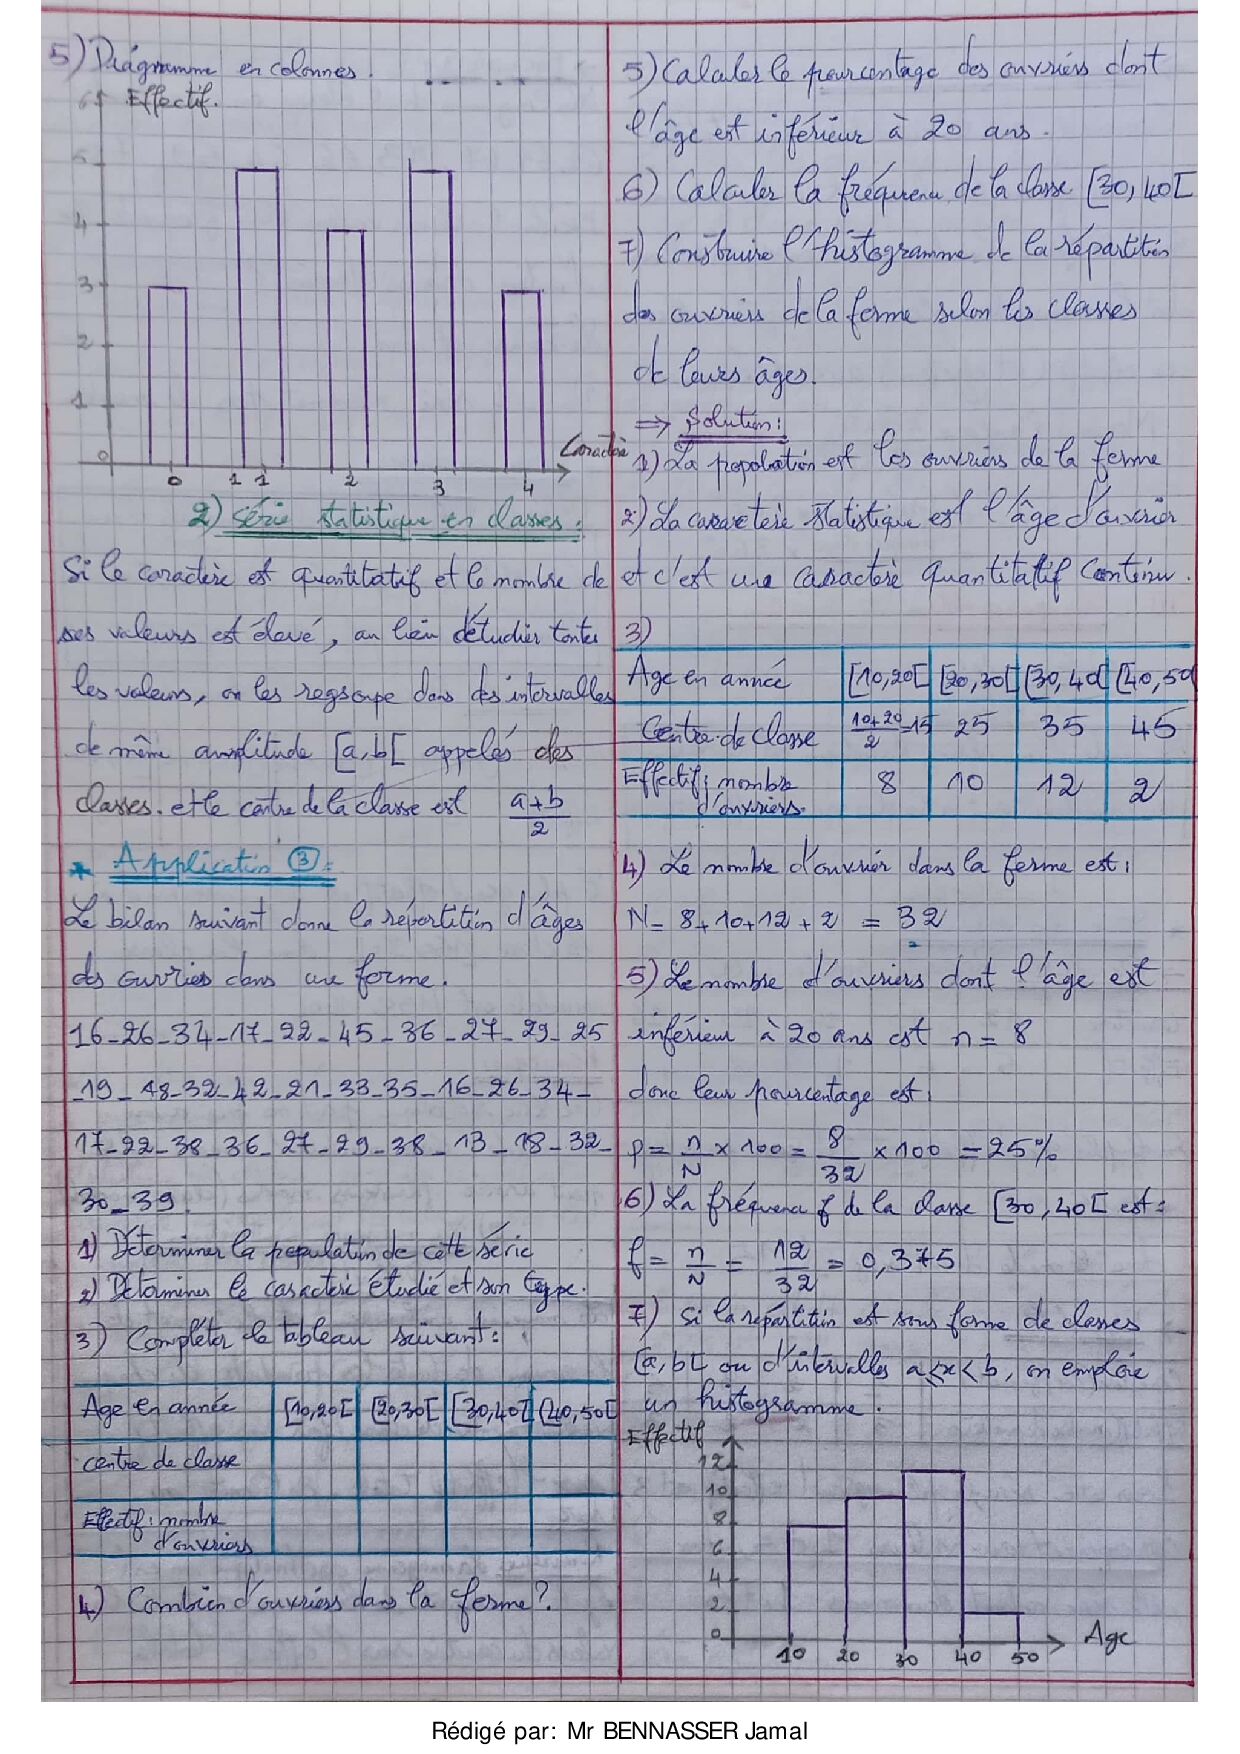 5) Diagramme en colonnes.
6 Effectif.
5
4
3
2
1
0
Caractère
0 1 1 2 3 4
2) série statistique en classes:
Si le caractère est quantitatif et le nombre de
ses valeurs est élevé, au lieu d'étudier toutes
les valeurs, on les regroupe dans des intervalles
de même amplitude [a,b[ appelés des
classes. et le centre de la classe est a+b/2
* Application ③:
Le bilan suivant donne la répartition d'âges
des ouvriés dans une ferme.
16_26_34_17_22_45_36_27_29_25
_19_48_32_42_21_33_35_16_26_34_
17_22_38_36_27_29_38_13_18_32_
30_39
1) Déterminer la population de cette série
2) Déterminer le caractère étudié et son type.
3) Compléter le tableau suivant:
Age en année [10,20[ [20,30[ [30,40[ [40,50[
centre de classe
Effectif: nombre
d'ouvriers
4) Combien d'ouvriers dans la ferme?
5) Calculer le pourcentage des ouvriers dont
l'âge est inférieur à 20 ans.
6) Calculer la fréquence de la classe [30,40[
7) Construire l'histogramme de la répartition
des ouvriers de la ferme selon les classes
de leurs âges.
=> Solution:
1) La popolation est les ouvriers de la ferme
2) La caractère statistique est l'âge d'ouvrier
et c'est une caractère quantitatif continu.
3)
Age en année [10,20[ [20,30[ [30,40[ [40,50[
Centre de classe 10+20/2=15 25 35 45
Effectif: nombre 8 10 12 2
d'ouvriers
4) Le nombre d'ouvrier dans la ferme est:
N= 8+10+12+2 = 32
5) Le nombre d'ouvriers dont l'âge est
inférieur à 20 ans est n= 8
donc leur pourcentage est:
p= n/N × 100 = 8/32 × 100 = 25%
6) La fréquence f de la classe [30,40[ est:
f= n/N = 12/32 = 0,375
7) Si la répartition est sous forme de classes
[a,b[ ou d'intervalles a≤x<b, on emploie
un histogramme.
Effectif
12
10
8
6
4
2
0
Age
10 20 30 40 50
Rédigé par: Mr BENNASSER Jamal